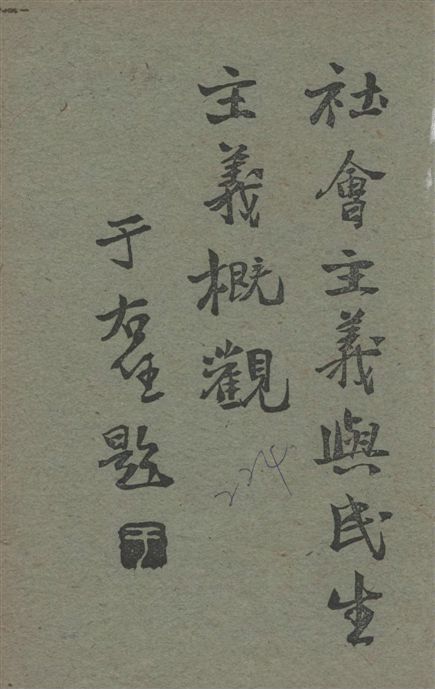 社會主義與民生
主義概觀
于右任題
224